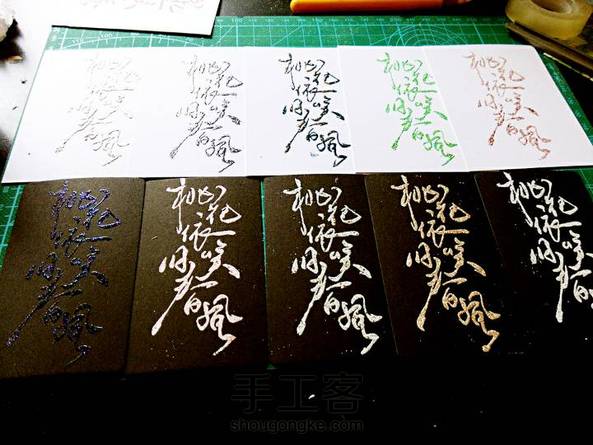 桃花依旧笑春風
桃花依旧笑春風
桃花依旧笑春風
桃花依旧笑春風
桃花依旧笑春風
桃花依旧笑春風
桃花依旧笑春風
桃花依旧笑春風
桃花依旧笑春風
桃花依旧笑春風
手工客
shougongke.com